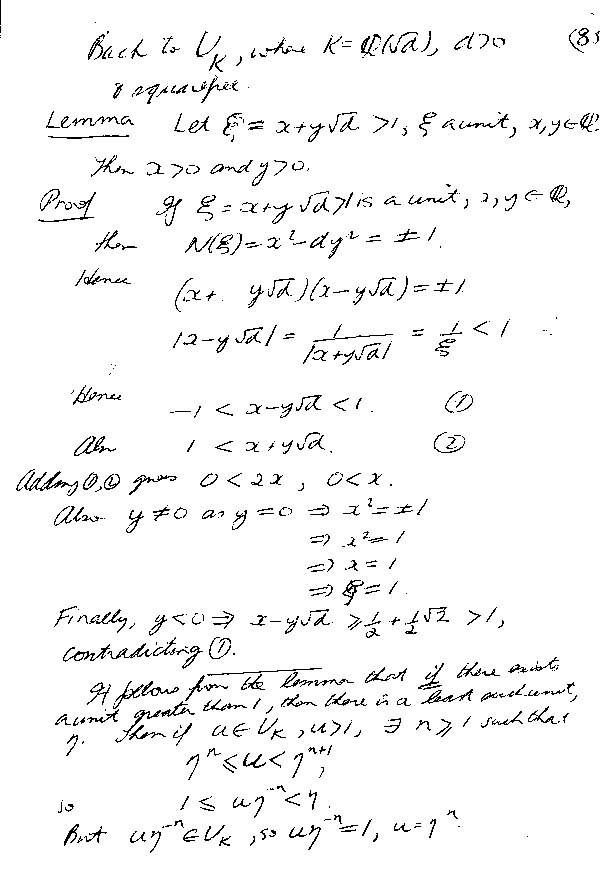 Back to U_K, where K = ℚ(√d), d>0 (85
& squarefree.
Lemma Let ξ = x+y√d >1, ξ a unit, x,y ∈ ℚ.
Then x>0 and y>0.
Proof If ξ = x+y√d >1 is a unit, x,y ∈ ℚ,
then N(ξ) = x² − dy² = ±1.
Hence (x + y√d)(x−y√d) = ±1
|x−y√d| = 1/|x+y√d| = 1/ξ < 1
Hence −1 < x−y√d < 1. ①
Also 1 < x+y√d. ②
Adding ①,② gives 0<2x, 0<x.
Also y≠0 as y=0 ⇒ x²=±1
⇒ x²=1
⇒ x=1
⇒ ξ=1.
Finally, y<0 ⇒ x−y√d ⩾ 1/2 + 1/2√2 >1,
contradicting ①.
It follows from the lemma that if there exists
a unit greater than 1, then there is a least such unit,
η. Then if u ∈ U_K, u>1, ∃ n⩾1 such that
ηⁿ ⩽ u < ηⁿ⁺¹,
so 1 ⩽ uη⁻ⁿ < η.
But uη⁻ⁿ ∈ U_K, so uη⁻ⁿ=1, u=ηⁿ.